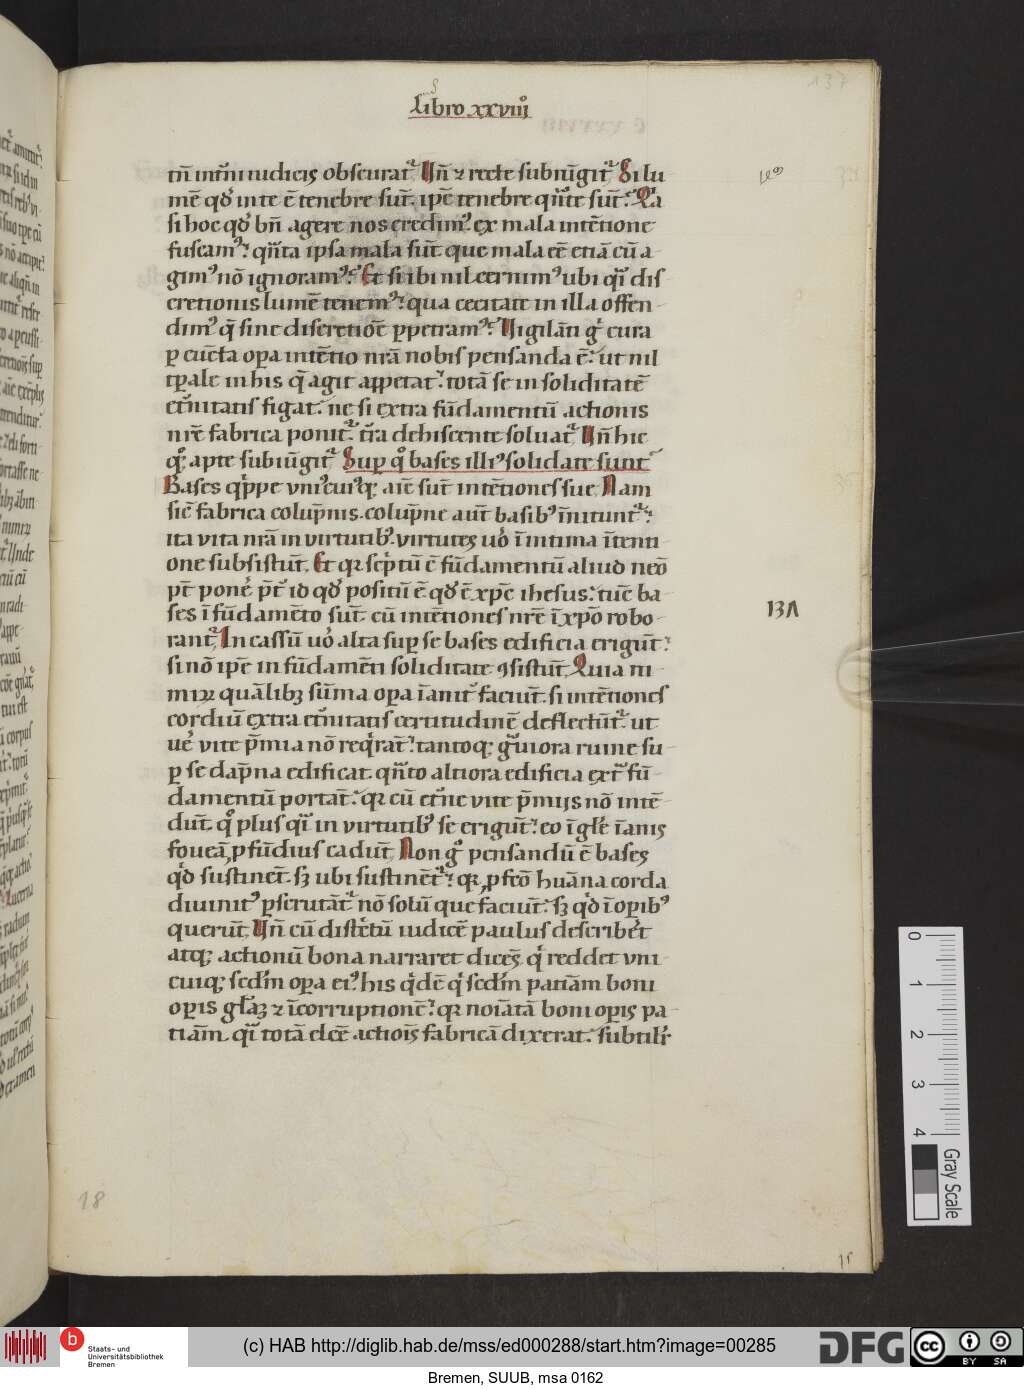 137
Libro xxviiiͦ
tn̄ int̄ni iudicis obscurat᷑. Vn̄ ⁊ recte subiūgit᷑. Si lu
mē qḋ in te ē tenebre sūt. ipē tenebre qn̄te sūt. Qͣa
si hoc qḋ bn̄ agere nos credimꝰ. ex mala intētione
fuscamꝰ. qn̄ta ipsa mala sūt que mala eē etiā cū a-
gimꝰ nō ignoramꝰ. Et si ibi nil cernimꝰ ubi qͣi dis
cretionis lumē tenemꝰ. qua cecitate in illa offen-
dimꝰ q̄ sine discretiōe ꝑpetramꝰ. Vigilāti gͦ cura
ꝑ cūcta oꝑa intētio nr̄a nobis pensanda ē. ut nil
tꝑale in his q̄ agit appetat. totā se in soliditatē
et̄nitatis figat. ne si extra fūdamentū actionis
nr̄e fabrica ponit᷑. t̄ra dehiscente soluat᷑. Vn̄ hic
qͦꝫ apte subiūgit᷑. Suꝑ qͦ bases illiꝰ solidate sunt
Bases qͥppe vniꝰcuiꝰqꝫ aīe sūt intētiones sue. Nam
sic̄ fabrica colūpnis. colūpne aūt basibꝰ īnitunt᷑.
ita vita nr̄a in virtutibꝰ. virtutes uͦo ī intima ītenti
one subsistūt. Et qꝛ scͥptū ē fūdamentū aliud nēo
pt̄ ponē. p̄t᷑ id qḋ positū ē qḋ ē xp̄c ihesus. tūc ba-
ses ī fūdamēto sūt. cū intētiones nr̄e ī xp̄o robo-
rant᷑. In cassū uͦo alta suꝑ se bases edificia erigūt.
si nō ipē in fūdamēti soliditate ꝯsistūt. Quia ni
mirꝫ quālibꝫ sūma oꝑa īanitꝰ faciūt. si intētiones
cordiū extra et̄nitatis certitudinē deflectūt᷑. ut
ue᷑ vite p̄mia nō reqͥrāt. tantoqꝫ gͣuiora ruine su-
ꝑ se dapna edificat. qn̄to altiora edificia ext᷑ fū-
damentū portāt. qꝛ cū et̄ne vite p̄mijs nō intē-
dūt. qͦ plus qͣi in virtutibꝰ se erigūt. eo ī gl̄e īanis
foueā ꝓfūdius cadūt. Non gͦ pensandū ē bases
qͥd sustinēt. sꝫ ubi sustinēt᷑. qꝛ ꝓfcō huāna corda
diuinitꝰ ꝑscrutāt᷑. nō solū que faciūt. sꝫ qͥd ī oꝑibꝰ
querūt. Vn̄ cū distͥctū iudicē paulus describe᷑t
atqꝫ actionū bona narraret dicēs. qͥ reddet vni
cuiqꝫ scd̄m oꝑa eiꝰ. his qͥdē qͥ scd̄m patiām boni
oꝑis gl̄aꝫ ⁊ īcorruptionē. qꝛ noīatā boni oꝑis pa-
tiām. qͣi totā dc̄e actiōis fabricā dixerat. subtilr̄
13A
18
0
1
2
3
4
Gray Scale
b
Staats- und
Universitätsbibliothek
Bremen
(c) HAB http://diglib.hab.de/mss/ed000288/start.htm?image=00285
DFG
cc
BY SA
Bremen, SUUB, msa 0162